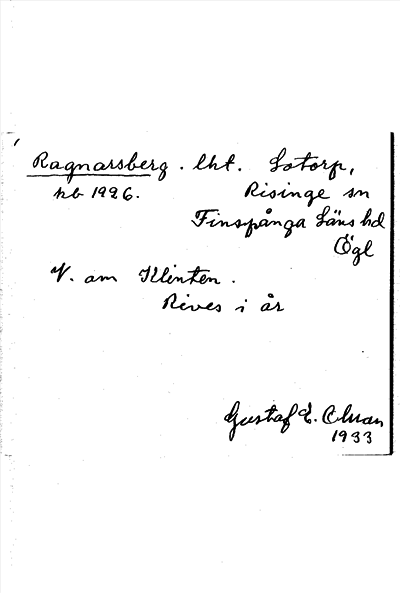 Ragnarsberg. lht. Lotorp,
kb 1926. Risinge sn
Finspånga Läns hd
Ögl
V. om Klinten.
Rives i år
Gustaf E. Olman
1933